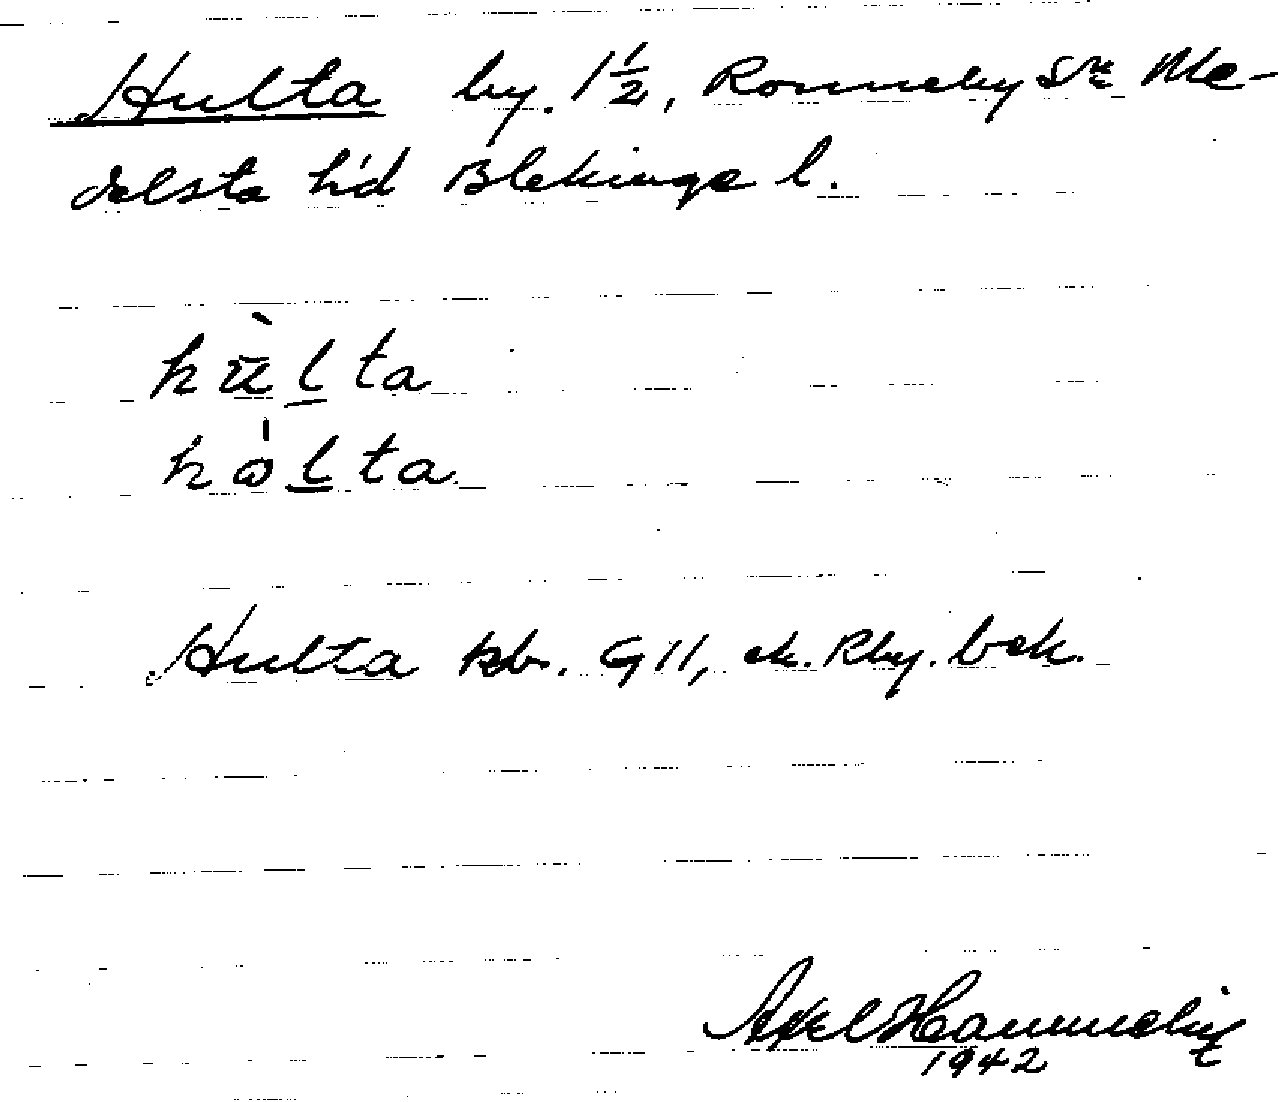 Hulta by. 1½, Ronneby sn Me-
delsta h'd Blekinge l.
hu̇̀lta
hòlta
Hulta kb. G 11, ek. Rby. bek.
Axel
1942